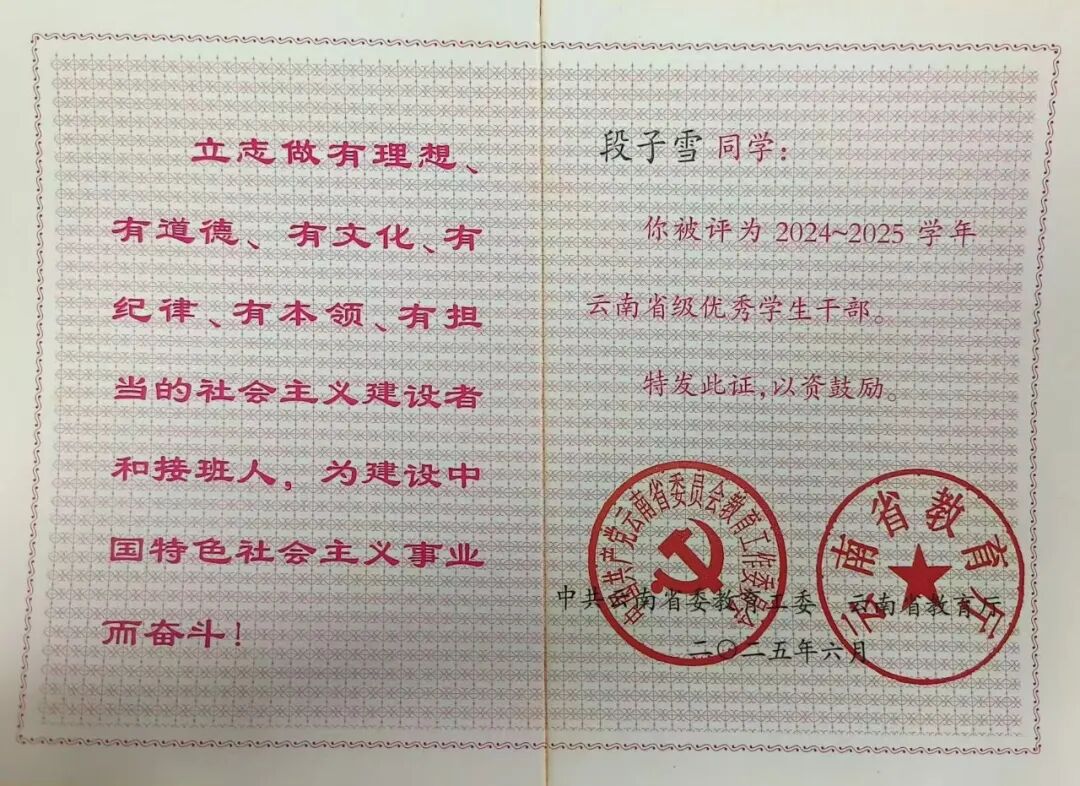 立志做有理想、
有道德、有文化、有
纪律、有本领、有担
当的社会主义建设者
和接班人，为建设中
国特色社会主义事业
而奋斗！
段子雪 同学：
你被评为 2024~2025 学年
云南省级优秀学生干部。
特发此证，以资鼓励。
中国共产党云南省委员会教育工作委员会
云南省教育厅
中共云南省委教育工委 云南省教育厅
二〇二五年六月